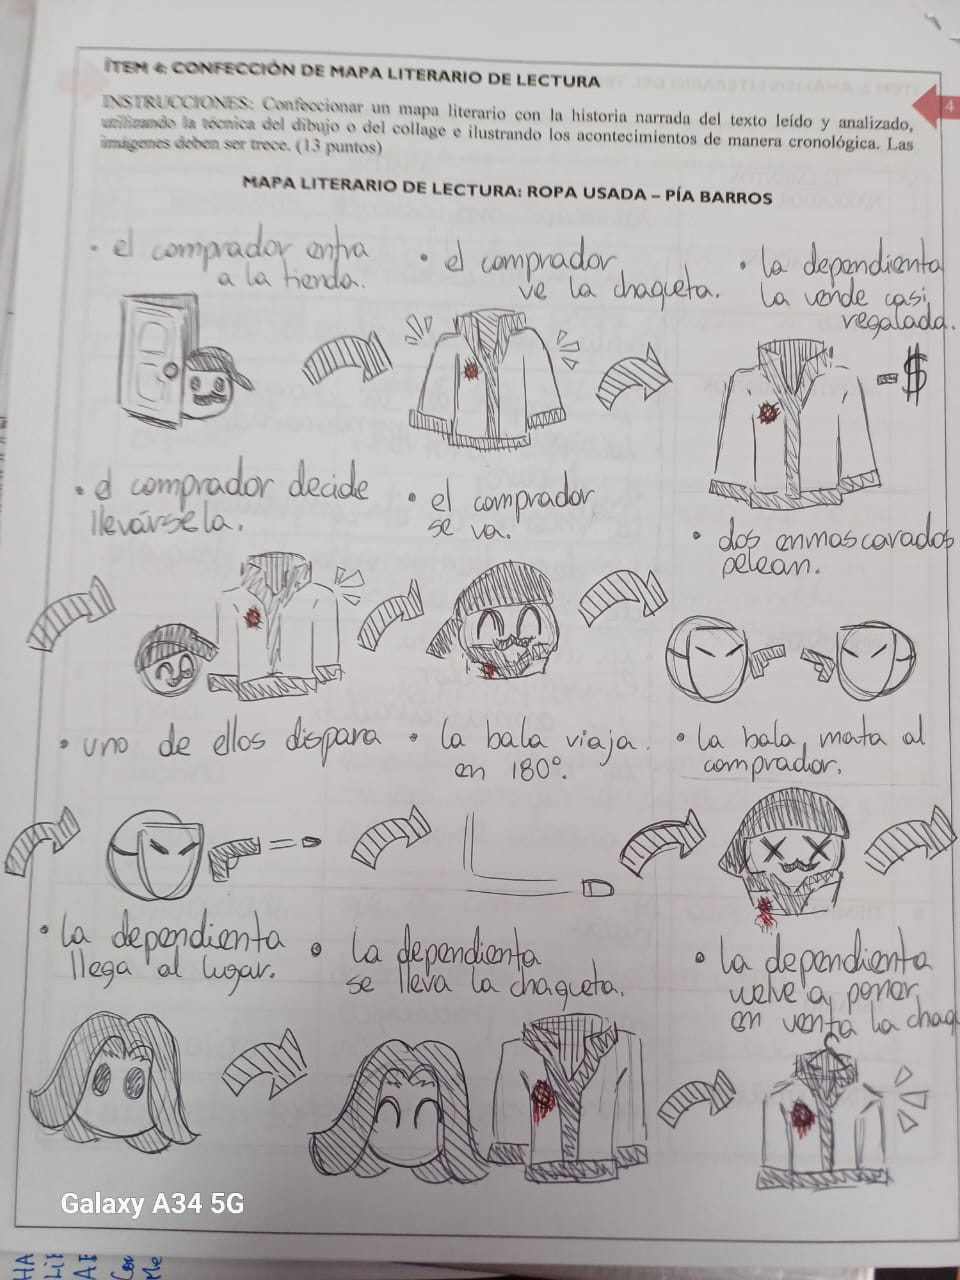 ÍTEM 4: CONFECCIÓN DE MAPA LITERARIO DE LECTURA
4
INSTRUCCIONES: Confeccionar un mapa literario con la historia narrada del texto leído y analizado,
utilizando la técnica del dibujo o del collage e ilustrando los acontecimientos de manera cronológica. Las
imágenes deben ser trece. (13 puntos)
MAPA LITERARIO DE LECTURA: ROPA USADA – PÍA BARROS
• el comprador entra
a la tienda.
• el comprador
ve la chaqueta.
• la dependienta
la vende casi
regalada.
-$
• el comprador decide
llevársela.
• el comprador
se va.
• dos enmascarados
pelean.
• uno de ellos dispara
• la bala viaja
en 180°.
• la bala mata al
comprador.
• la dependienta
llega al lugar.
• la dependienta
se lleva la chaqueta.
• la dependienta
vuelve a poner
en venta la chaq
Galaxy A34 5G